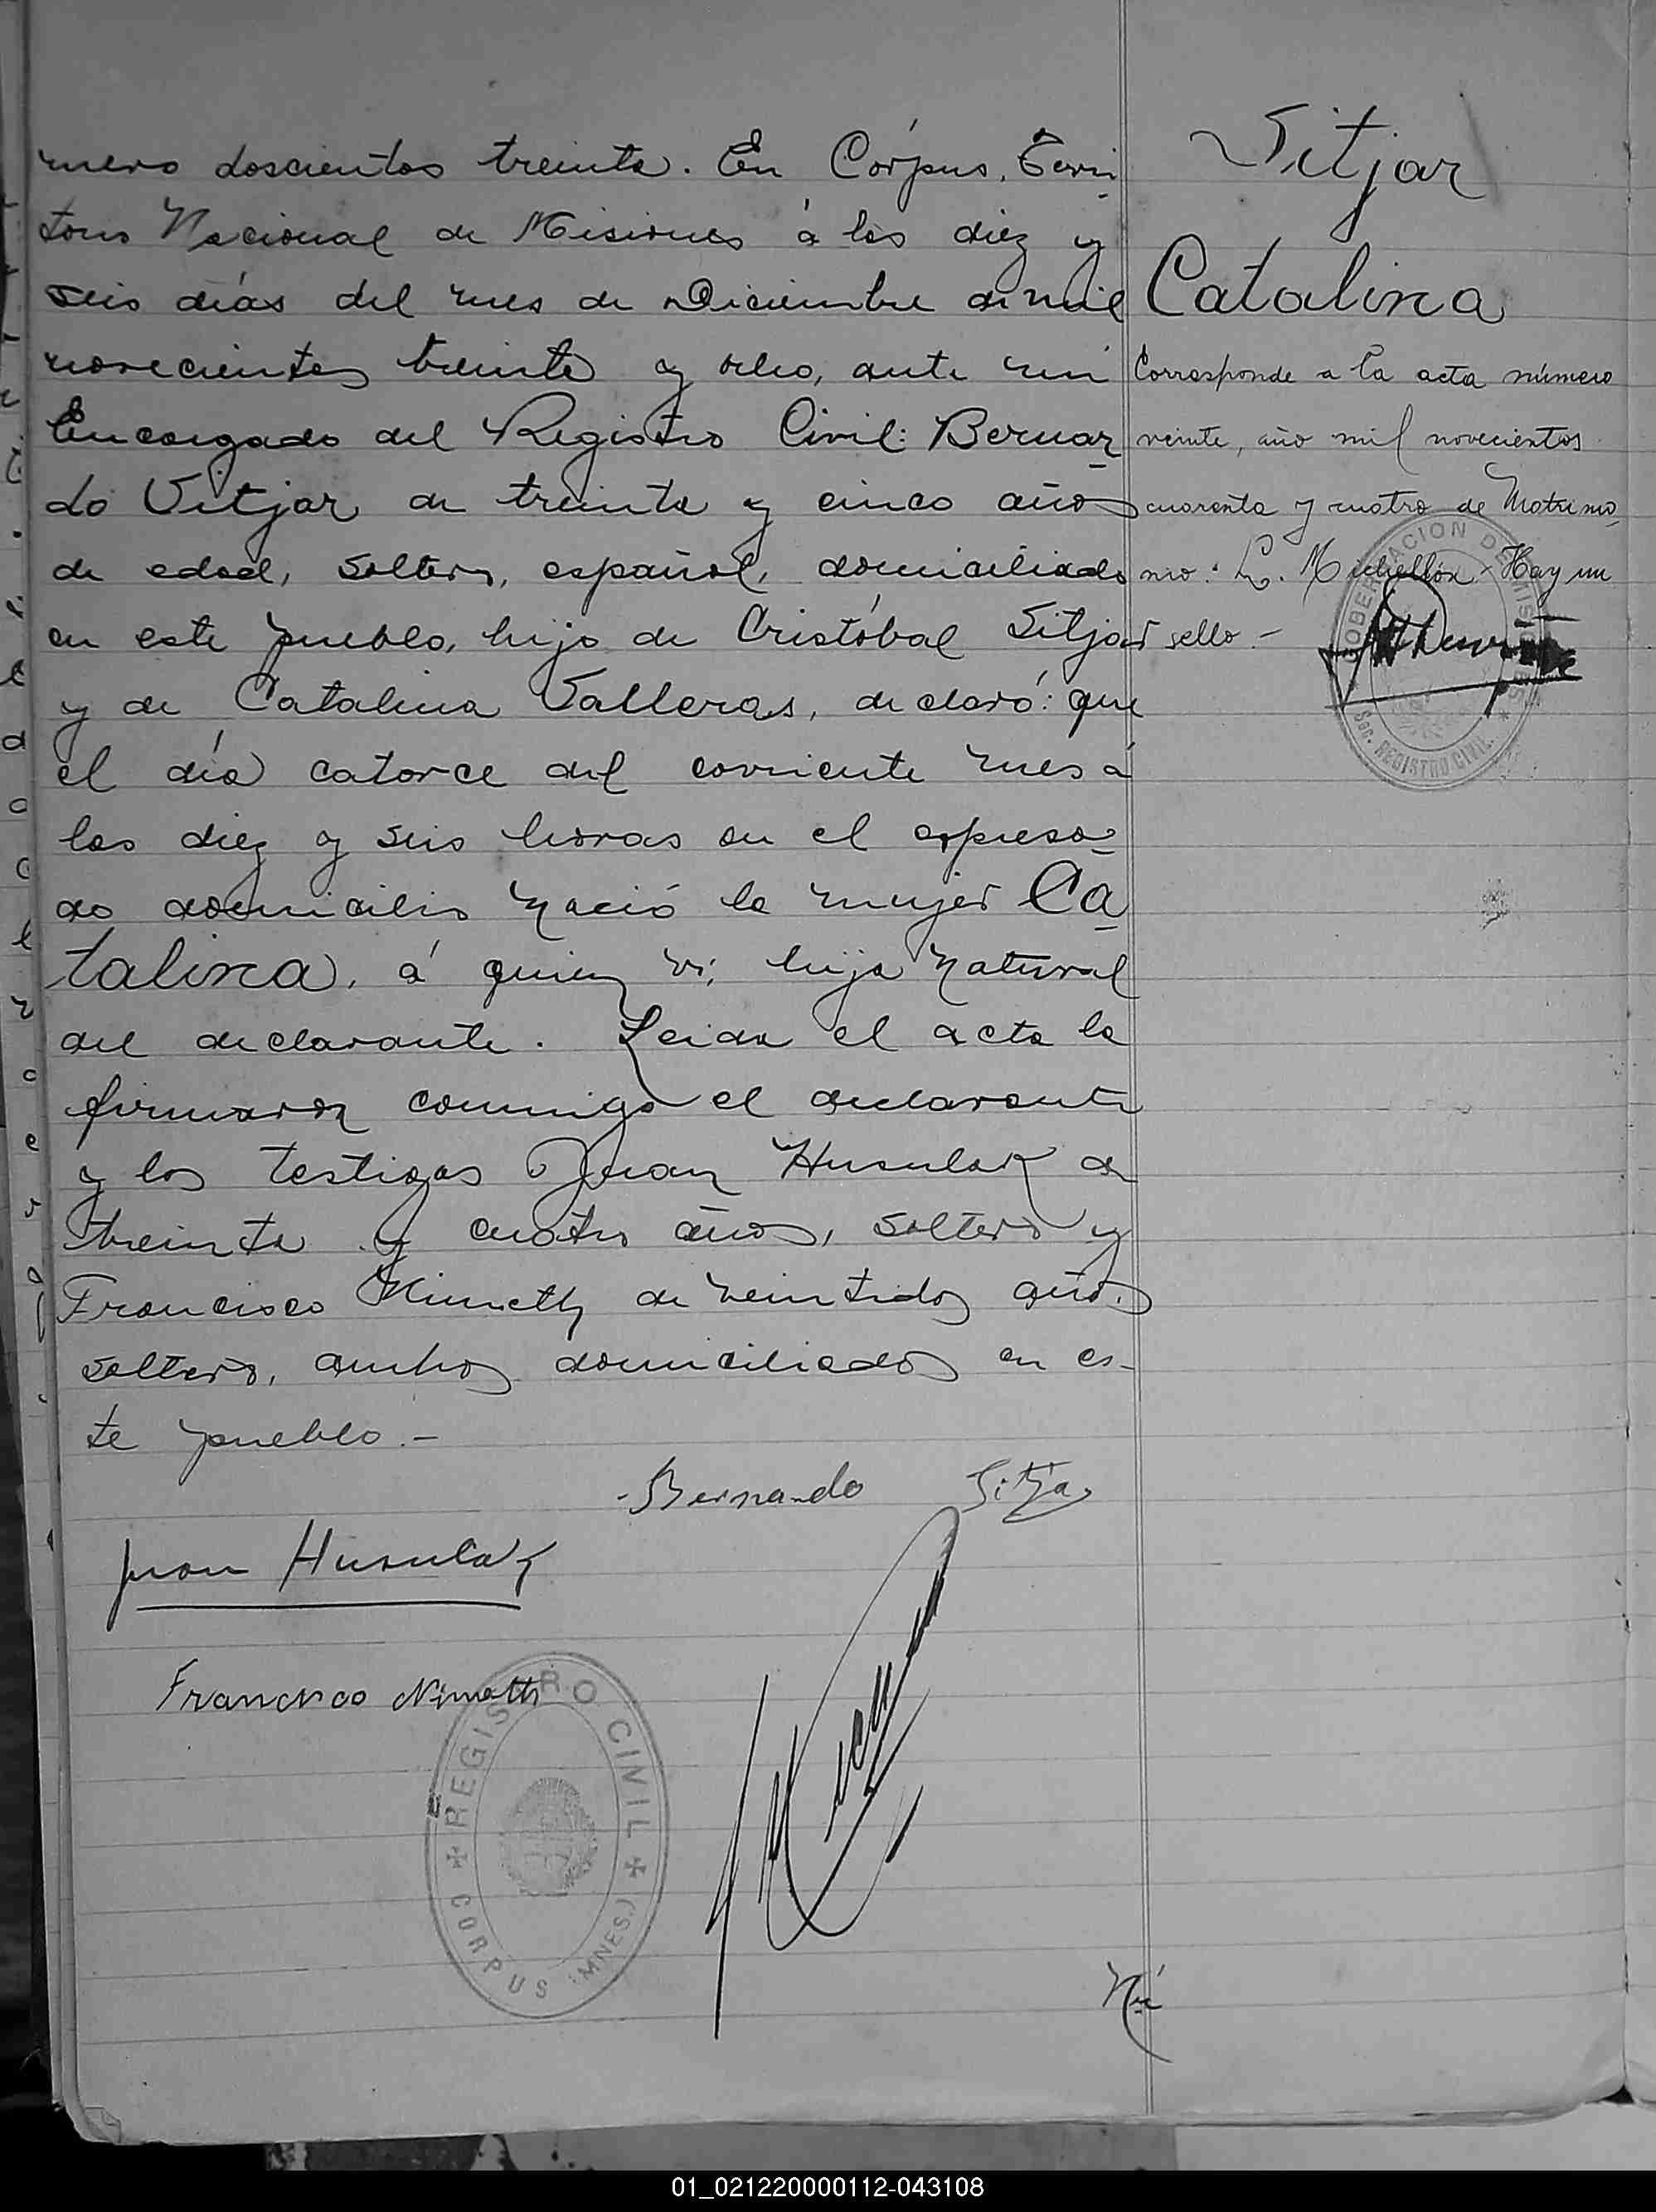 mero doscientos treinta. En Córpus, Terri-
torio Nacional de Misiones á los diez y
seis días del mes de Diciembre de mil
novecientos treinta y ocho, ante mi
Encargado del Registro Civil: Bernar-
do Sitjar de treinta y cinco años
de edad, soltero, español, domiciliado
en este pueblo, hijo de Cristóbal Sitjar
y de Catalina Valleras, declaró: que
el día catorce del corriente mes á
las diez y seis horas en el expresa-
do domicilio nació la mujer Ca-
talina, á quien vi; hija natural
del declarante. Leida el acta la
firmaron conmigo el declarante
y los testigos Juan Husulak de
treinta y cuatro años, soltero y
Francisco Nimeth de veintidos años
soltero, ambos domiciliados en es-
te pueblo.-
Bernardo Sitja
Juan Husulak
Francisco Nimeth
REGISTRO CIVIL
CORPUS (MNES.)
Sitjar
Catalina
Corresponde a la acta número
veinte, año mil novecientos
cuarenta y cuatro de Matrimo-
nio: L. Michellón - Hay un
sello -
GOBERNACION DE MISIONES
Sec. REGISTRO CIVIL
Nú
01_021220000112-043108